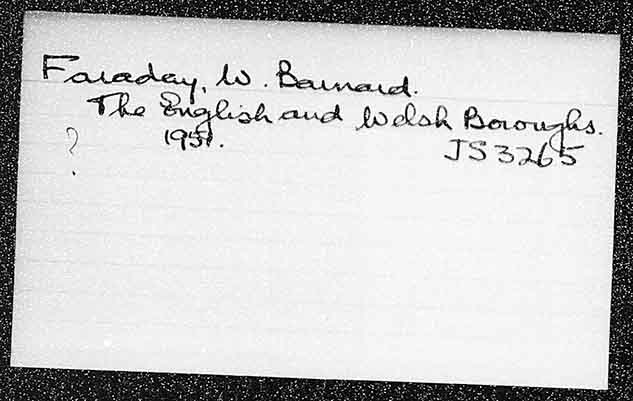 Faraday, W. Barnard.
The English and Welsh Boroughs.
? 1951. JS3265